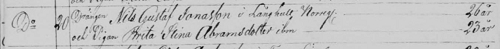 Do 20 Drängen Nils Gustaf Jonasson i Långhult Norreg. 26 år
och Pigan Brita Stina Abramsdotter ibm 23 år